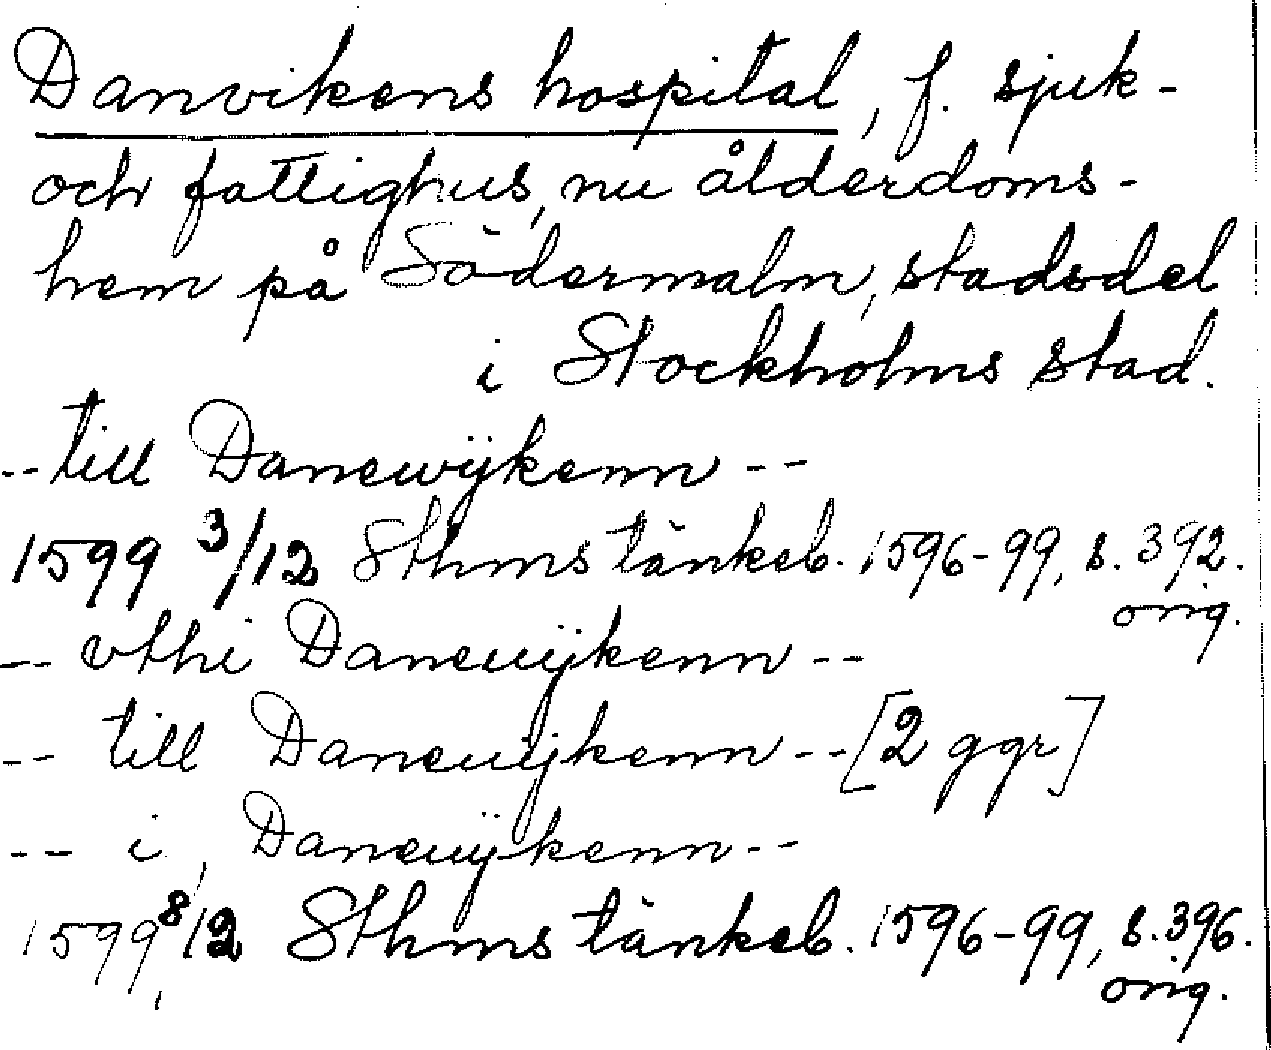 Danvikens hospital, f. sjuk-
och fattighus, nu ålderdoms-
hem på Södermalm, stadsdel
i Stockholms stad.
-- till Danewÿkenn --
1599 3/12 Sthms tänkeb. 1596-99, s. 392.
orig.
-- vthi Daneuÿkenn --
-- till Daneuÿkenn -- [2 ggr]
-- i Daneuÿkenn --
1599 8/12 Sthms tänkeb. 1596-99, s. 396.
orig.